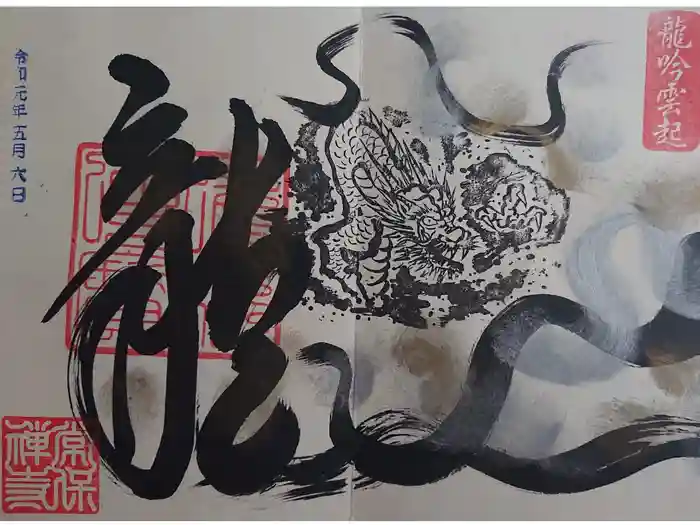 龍吟雲起
龍
令和元年五月六日
常保禅寺